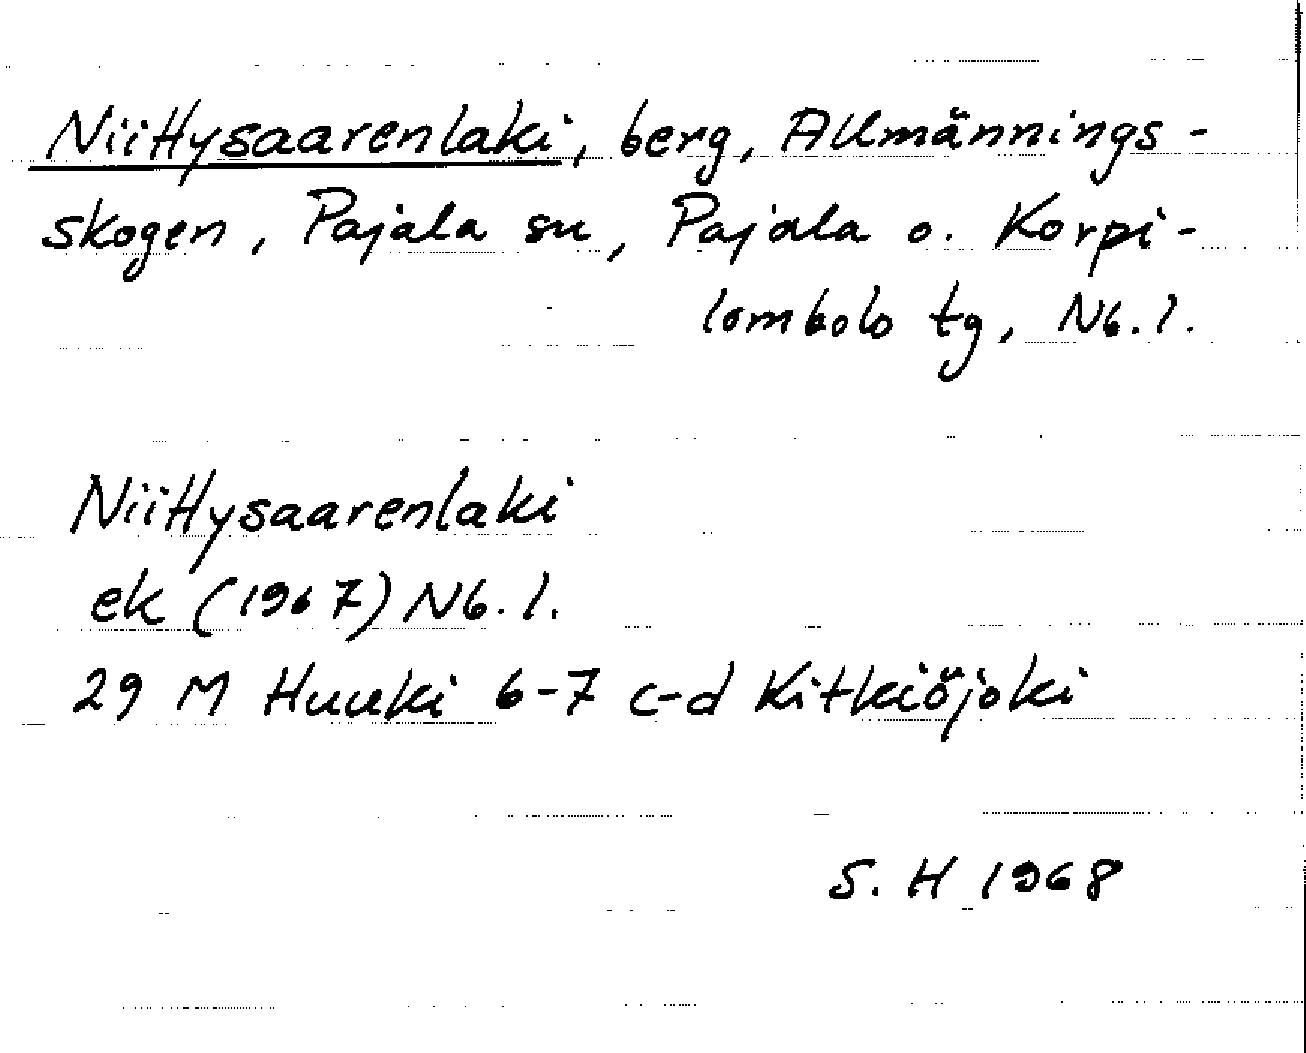 Niittysaarenlaki, berg, Allmännings-
skogen, Pajala sn, Pajala o. Korpi-
lombolo tg, Nb. l.
Niittysaarenlaki
ek (1967) Nb. l.
29 M Huuki 6-7 c-d Kitkiöjoki
S. H 1968